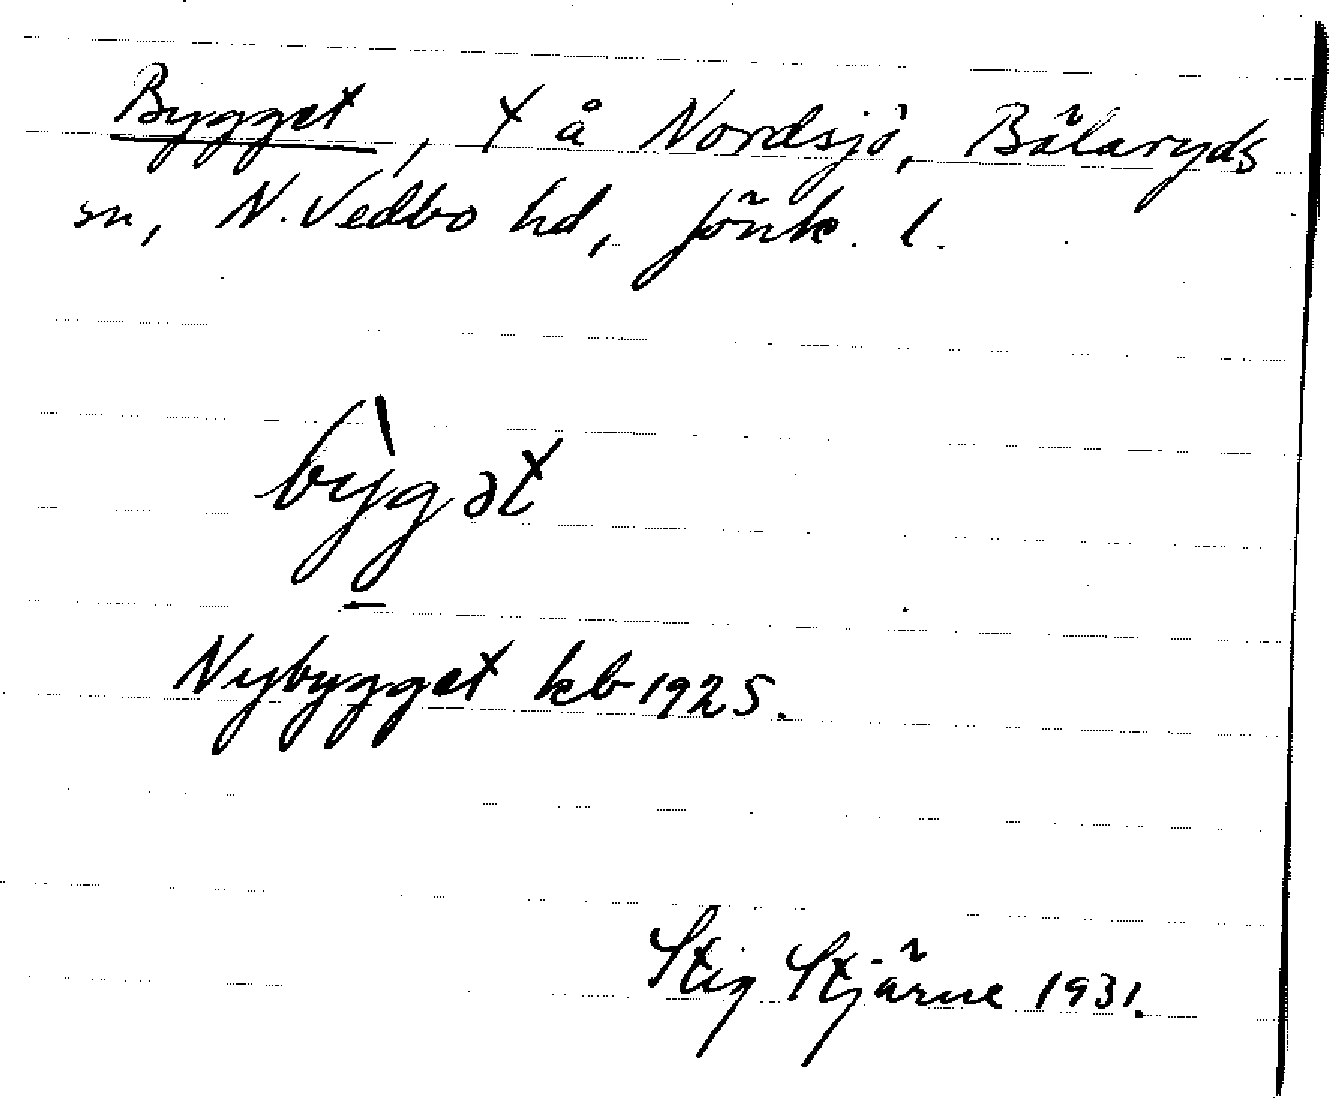 Bygget, t å Nordsjö, Bälaryds
sn, N. Vedbo hd, Jönk. l.
by̍g̱ət
Nybygget kb 1925.
Stig Stjärne 1931.